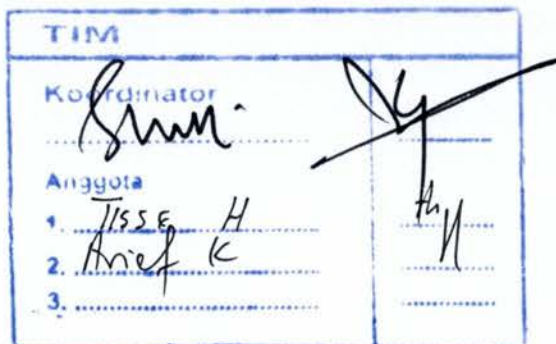 TIM
Koordinator
Anggota
1. TISSE H
2. Arief K
3.